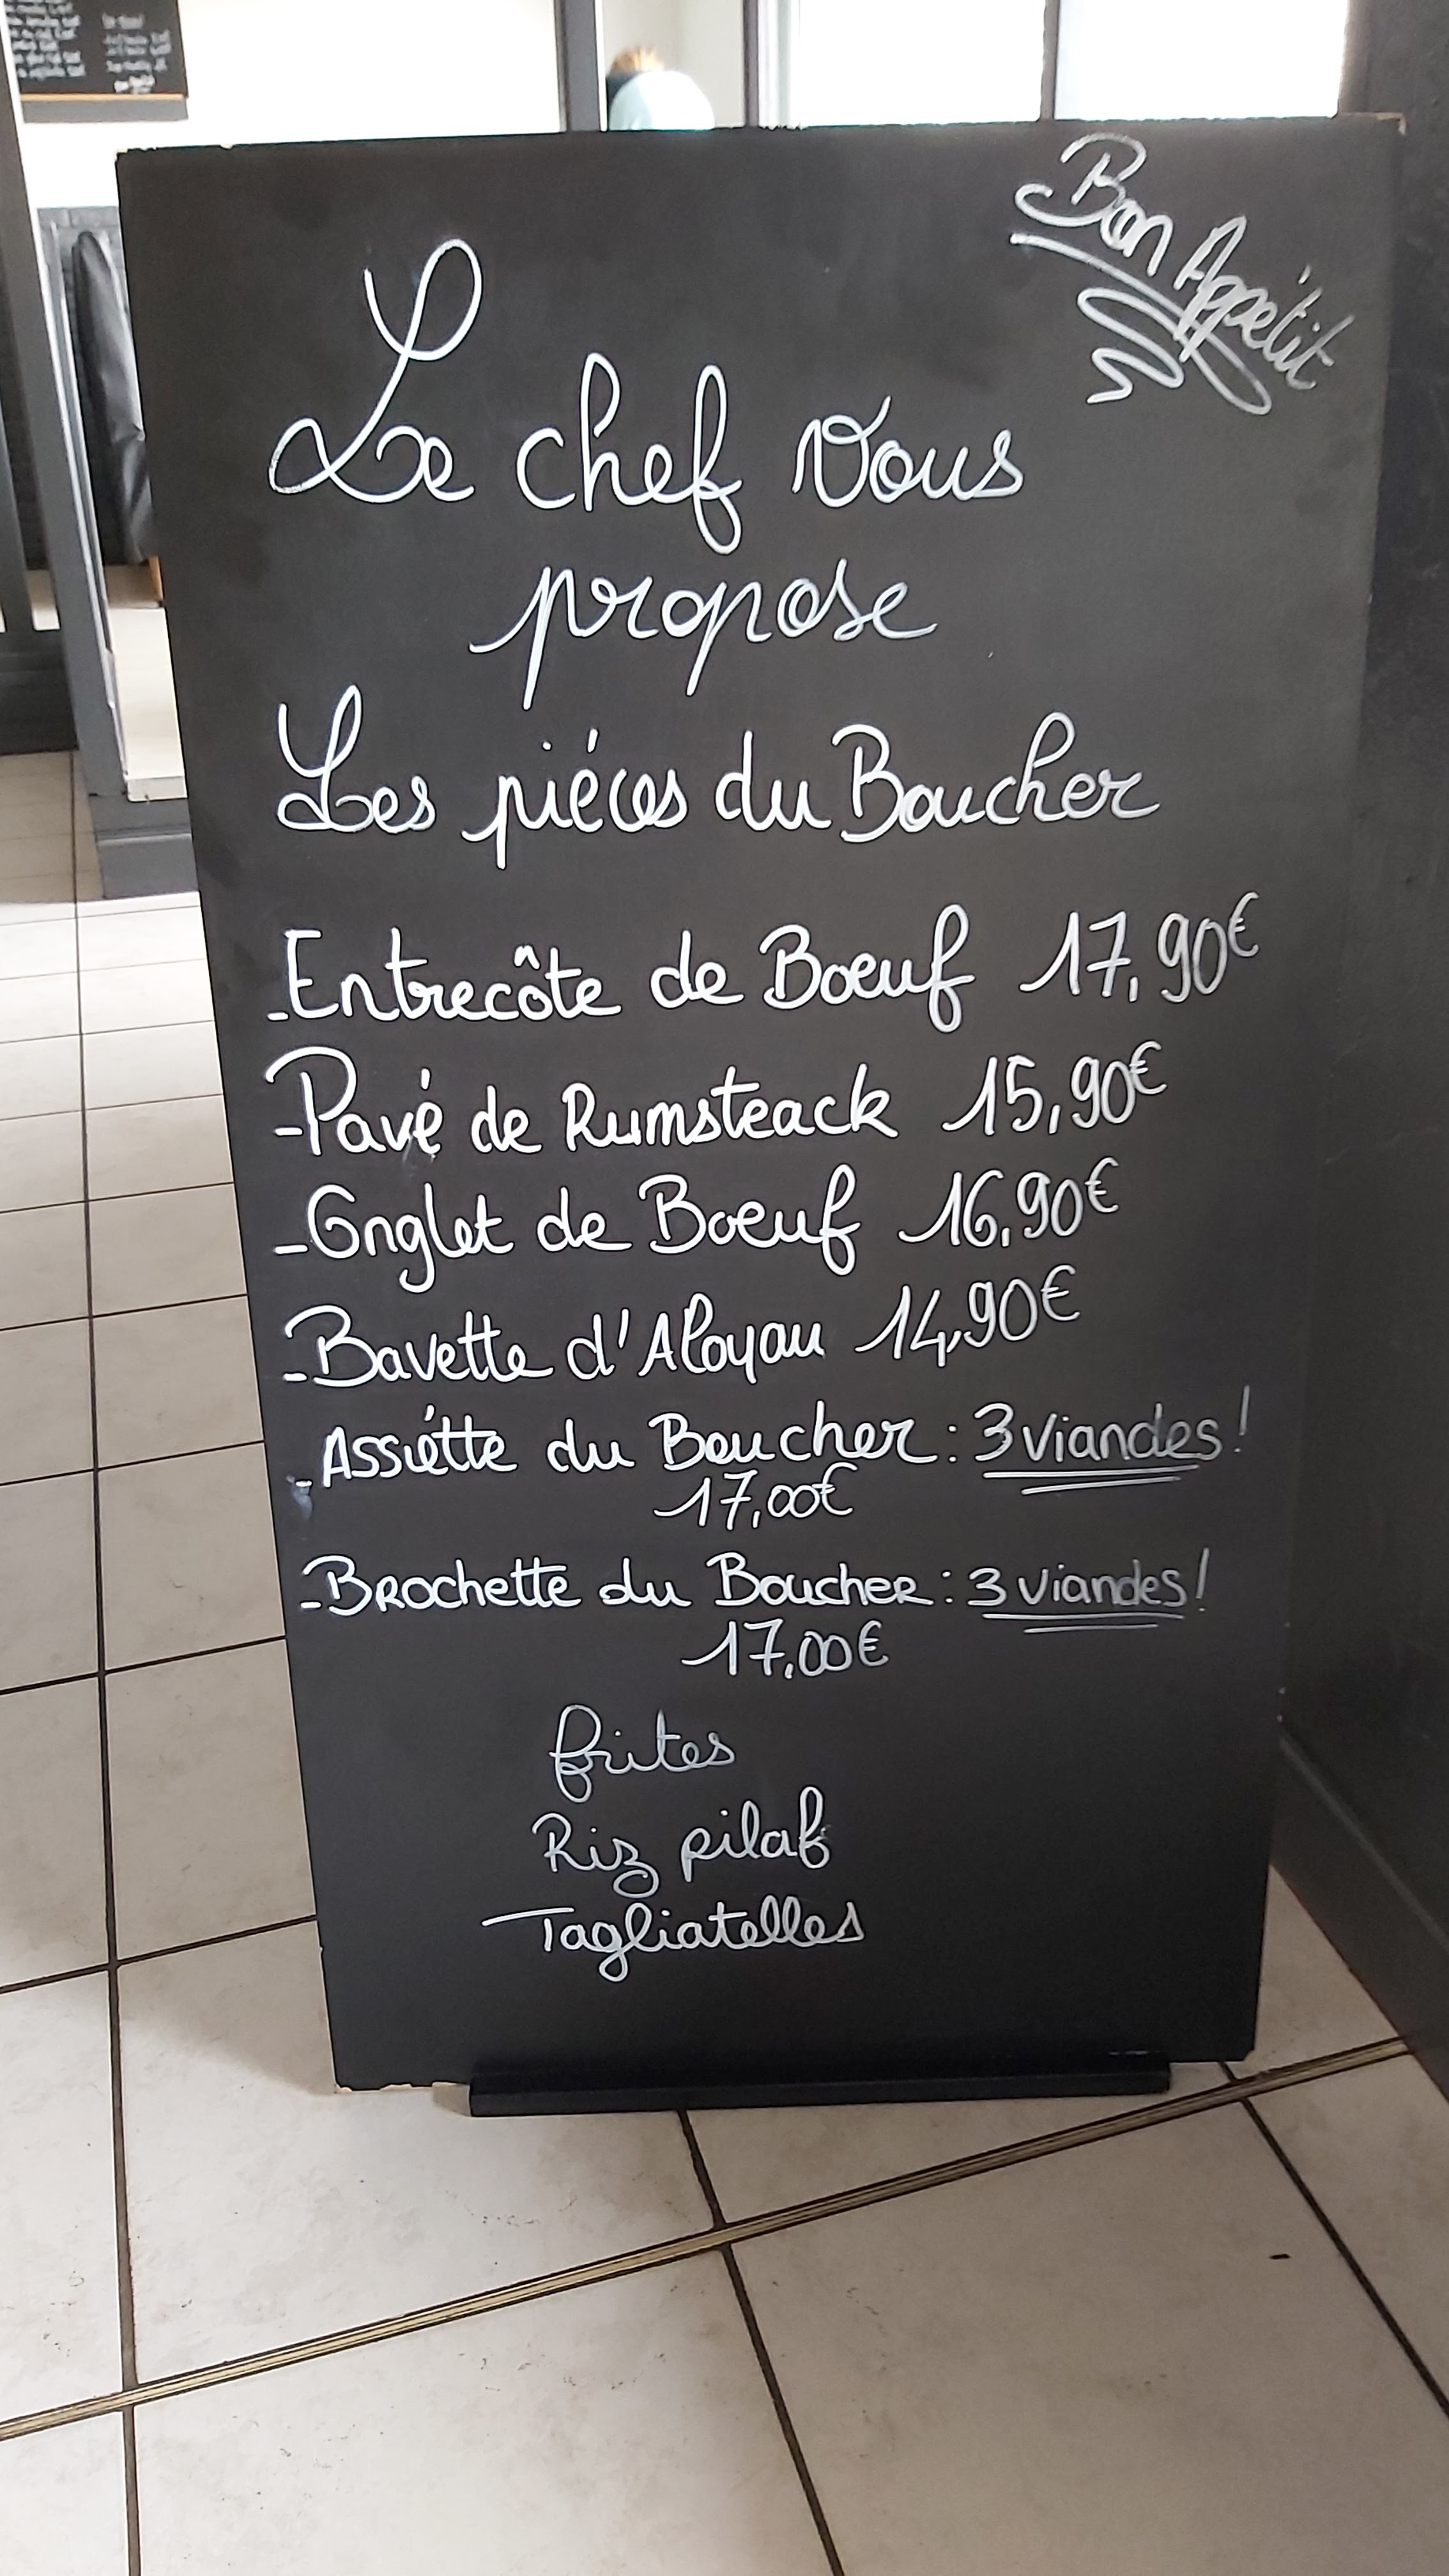 Bon Appétit
Le chef vous
propose
Les piéces du Boucher
-Entrecôte de Boeuf 17,90€
-Pavé de Rumsteack 15,90€
-Onglet de Boeuf 16,90€
-Bavette d'Aloyau 14,90€
-Assiétte du Boucher : 3 viandes !
17,00€
-Brochette du Boucher : 3 viandes !
17,00€
frites
Riz pilaf
Tagliatelles